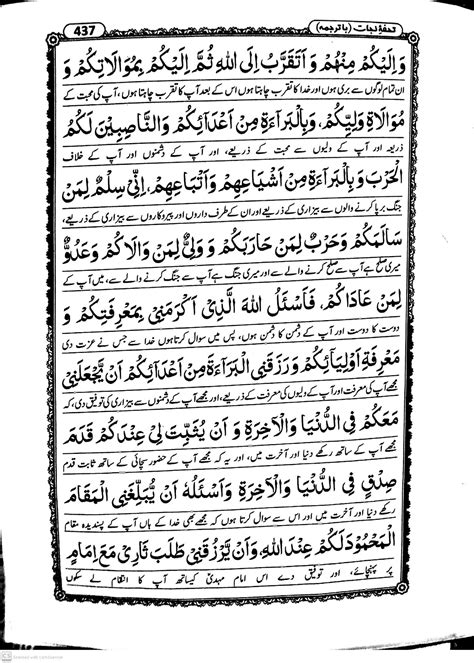 تحفۂ نجات (با ترجمہ)
437
وَ اِلَیْکُمْ مِنْهُمْ وَ اَتَقَرَّبُ اِلَی اللهِ ثُمَّ اِلَیْکُمْ بِمُوَالَاتِکُمْ وَ
ان تمام لوگوں سے بری ہوں اور خدا کا تقرب چاہتا ہوں اس کے بعد آپ کا تقرب چاہتا ہوں، آپ کی محبت کے
مُوَالَاةِ وَلِیِّکُمْ، وَبِالْبَرَاءَةِ مِنْ اَعْدَائِکُمْ وَالنَّاصِبِیْنَ لَکُمُ
ذریعہ اور آپ کے ولیوں سے محبت کے ذریعے، اور آپ کے دشمنوں اور آپ کے خلاف
الْحَرْبَ وَ بِالْبَرَاءَةِ مِنْ اَشْیَاعِهِمْ وَ اَتْبَاعِهِمْ، اِنِّیْ سِلْمٌ لِمَنْ
جنگ برپا کرنے والوں سے بیزاری کے ذریعے اور ان کے طرف داروں اور پیروکاروں سے بیزاری کے ذریعے،
سَالَمَکُمْ وَ حَرْبٌ لِمَنْ حَارَبَکُمْ وَ وَلِیٌّ لِمَنْ وَالَاکُمْ وَ عَدُوٌّ
میری صلح ہے آپ سے صلح کرنے والے سے، اور میری جنگ ہے آپ سے جنگ کرنے والے سے، میں آپ کے
لِمَنْ عَادَاکُمْ، فَاَسْئَلُ اللهَ الَّذِیْ اَکْرَمَنِیْ بِمَعْرِفَتِکُمْ وَ
دوست کا دوست اور آپ کے دشمن کا دشمن ہوں، پس میں سوال کرتا ہوں خدا سے جس نے عزت دی
مَعْرِفَةِ اَوْلِیَائِکُمْ وَ رَزَقَنِی الْبَرَاءَةَ مِنْ اَعْدَائِکُمْ اَنْ یَّجْعَلَنِیْ
مجھے آپ کی معرفت اور آپ کے ولیوں کی معرفت کے ذریعے، اور مجھے آپ کے دشمنوں سے بیزاری کی توفیق دی، کہ
مَعَکُمْ فِی الدُّنْیَا وَ الْاٰخِرَةِ وَ اَنْ یُثَبِّتَ لِیْ عِنْدَکُمْ قَدَمَ
مجھے آپ کے ساتھ رکھے دنیا اور آخرت میں، اور یہ کہ مجھے آپ کے حضور سچائی کے ساتھ ثابت قدم
صِدْقٍ فِی الدُّنْیَا وَ الْاٰخِرَةِ وَ اَسْئَلُهٗ اَنْ یُبَلِّغَنِی الْمَقَامَ
رکھے دنیا اور آخرت میں اور اس سے سوال کرتا ہوں کہ مجھے بھی خدا کے ہاں آپ کے پسندیدہ مقام
الْمَحْمُوْدَ لَکُمْ عِنْدَ اللهِ، وَ اَنْ یَّرْزُقَنِیْ طَلَبَ ثَارِیْ مَعَ اِمَامٍ
پر پہنچائے، اور توفیق دے اس امام مہدیؑ کیساتھ آپ کا انتقام لے سکوں